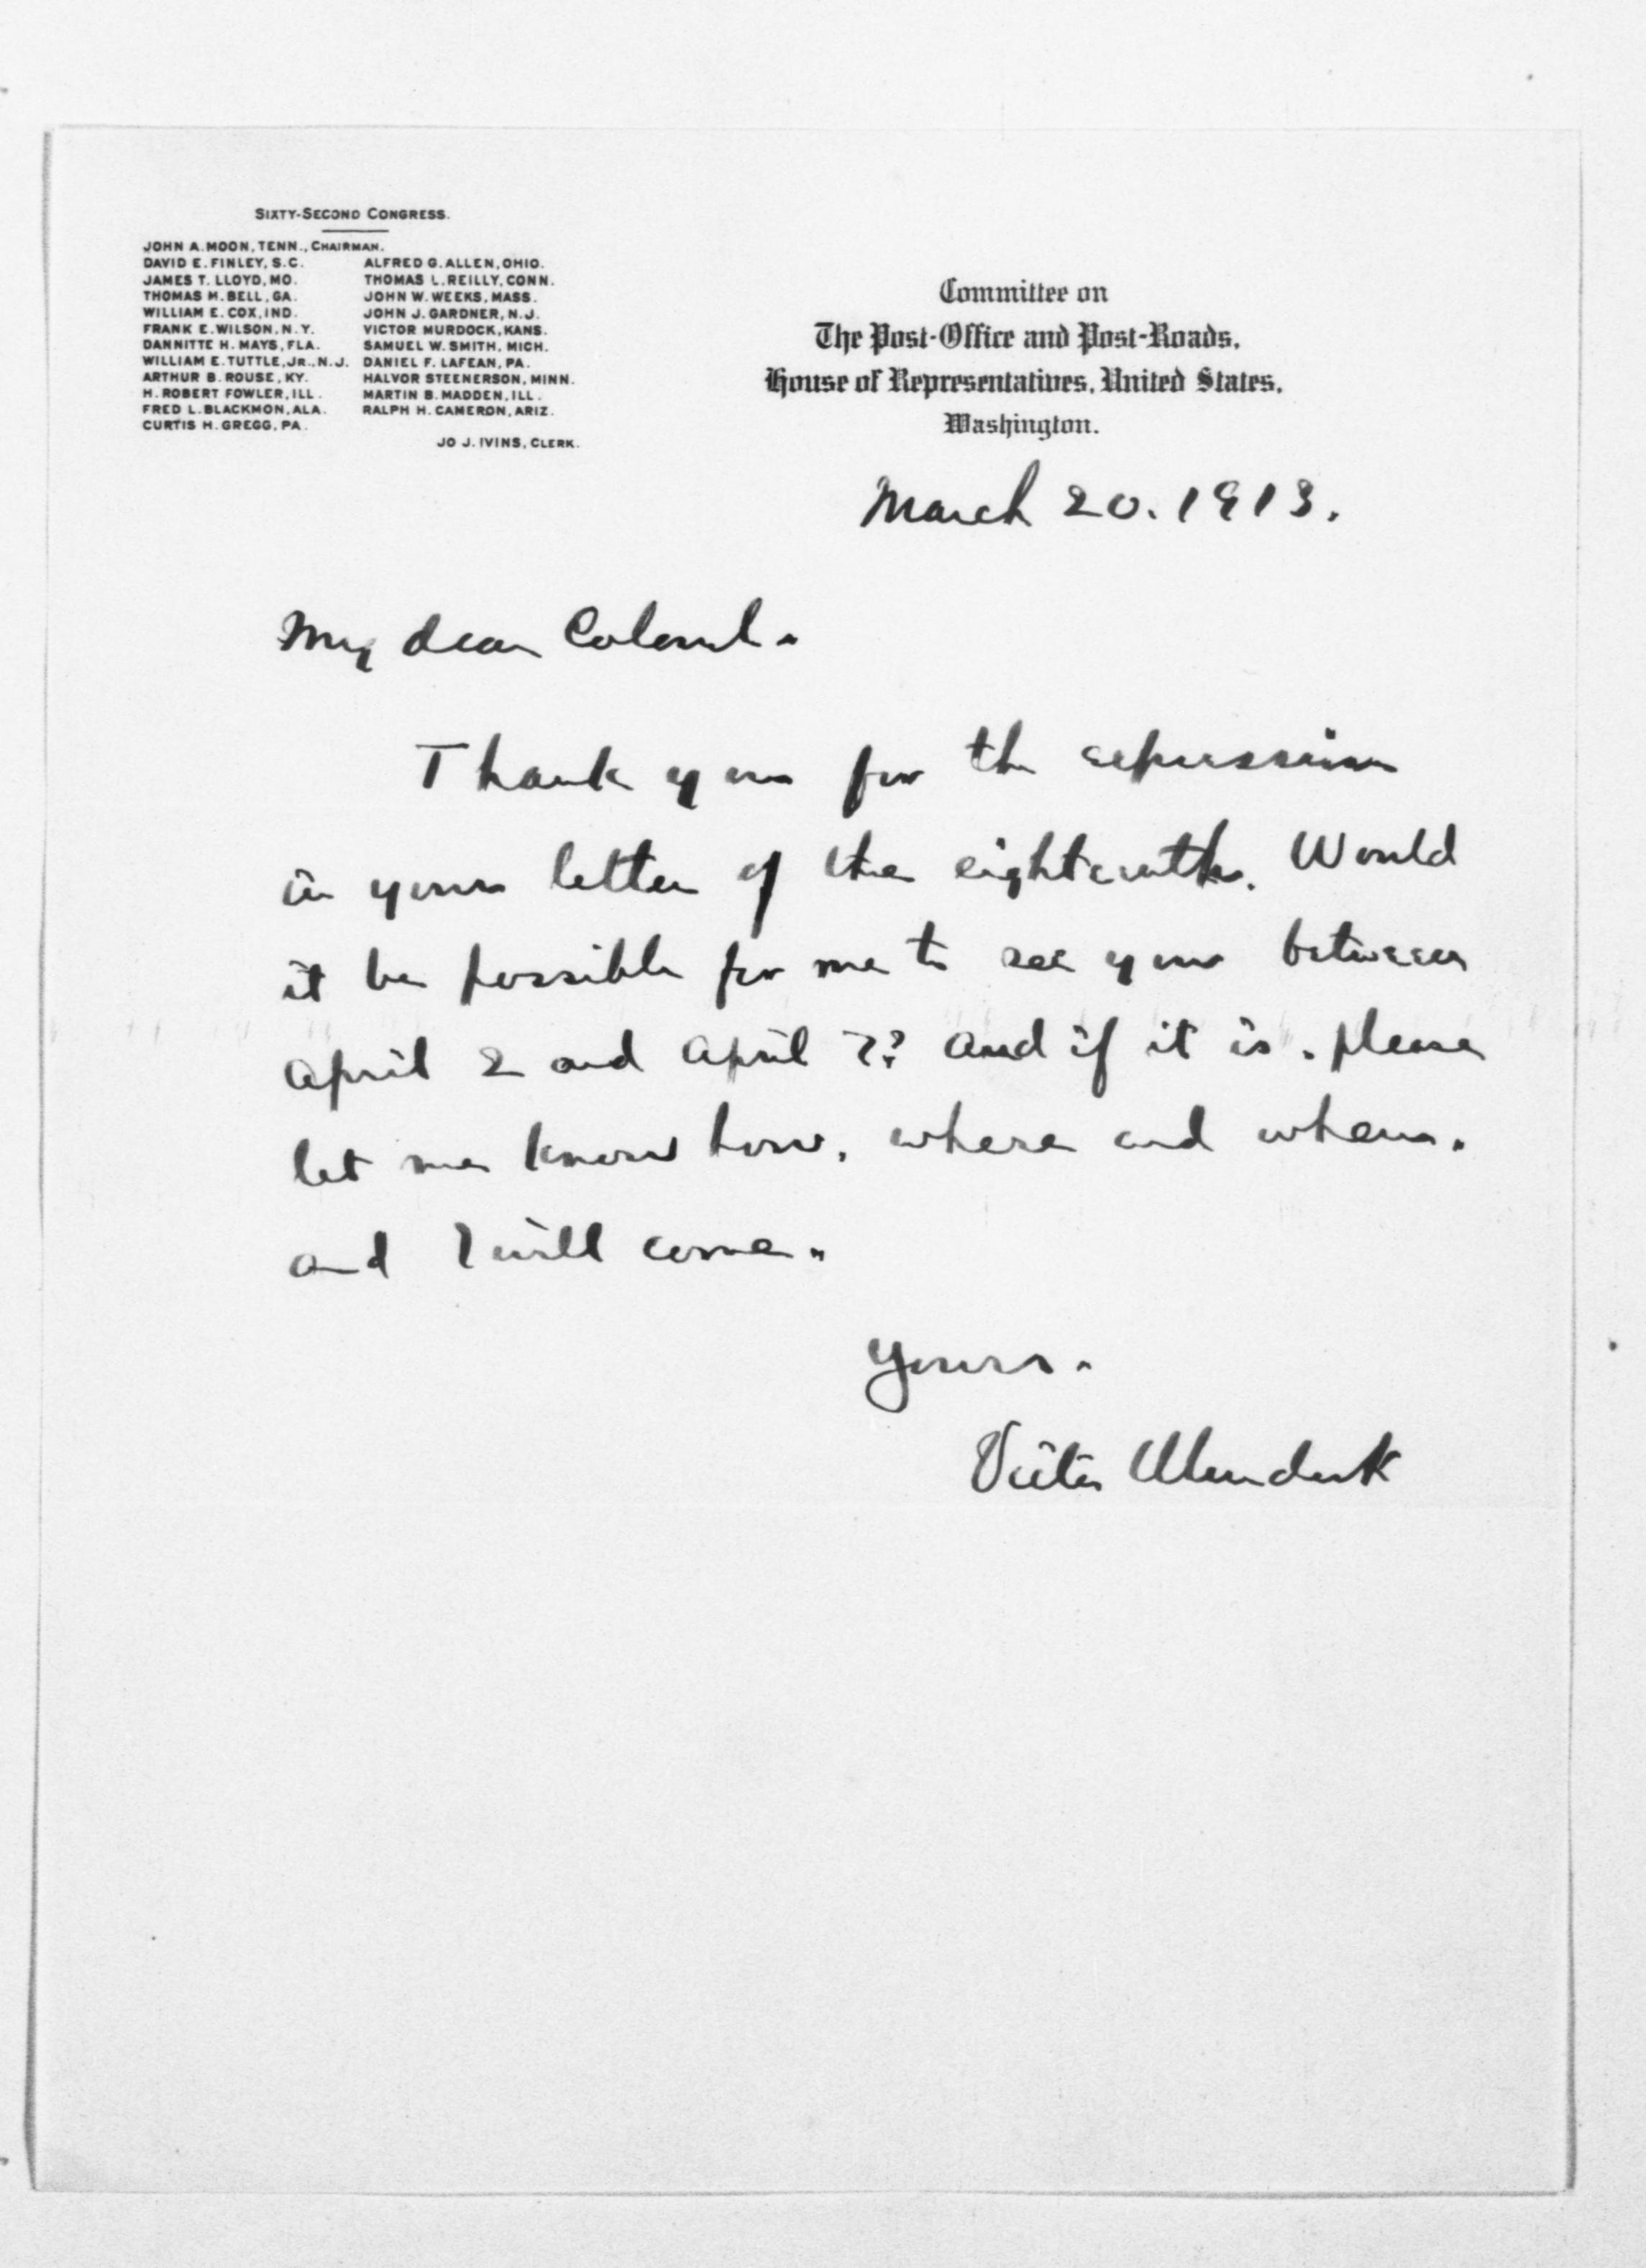 SIXTY-SECOND CONGRESS.
JOHN A. MOON, TENN., CHAIRMAN.
DAVID E. FINLEY, S.C.
JAMES T. LLOYD, MO.
THOMAS M. BELL, GA.
WILLIAM E. COX, IND.
FRANK E. WILSON, N.Y.
DANNITTE H. MAYS, FLA.
WILLIAM E. TUTTLE, JR., N.J.
ARTHUR B. ROUSE, KY.
H. ROBERT FOWLER, ILL.
FRED L. BLACKMON, ALA.
CURTIS H. GREGG, PA.
ALFRED G. ALLEN, OHIO.
THOMAS L. REILLY, CONN.
JOHN W. WEEKS, MASS.
JOHN J. GARDNER, N.J.
VICTOR MURDOCK, KANS.
SAMUEL W. SMITH, MICH.
DANIEL F. LAFEAN, PA.
HALVOR STEENERSON, MINN.
MARTIN B. MADDEN, ILL.
RALPH H. CAMERON, ARIZ.
JO J. IVINS, CLERK.
Committee on
The Post-Office and Post-Roads,
House of Representatives, United States,
Washington.
March 20. 1913.
My dear Colonel.
Thank you for the expression
in your letter of the eighteenth. Would
it be possible for me to see you between
April 2 and April 7? And if it is, please
let me know how, where and when.
and I will come.
Yours.
Victor Murdock